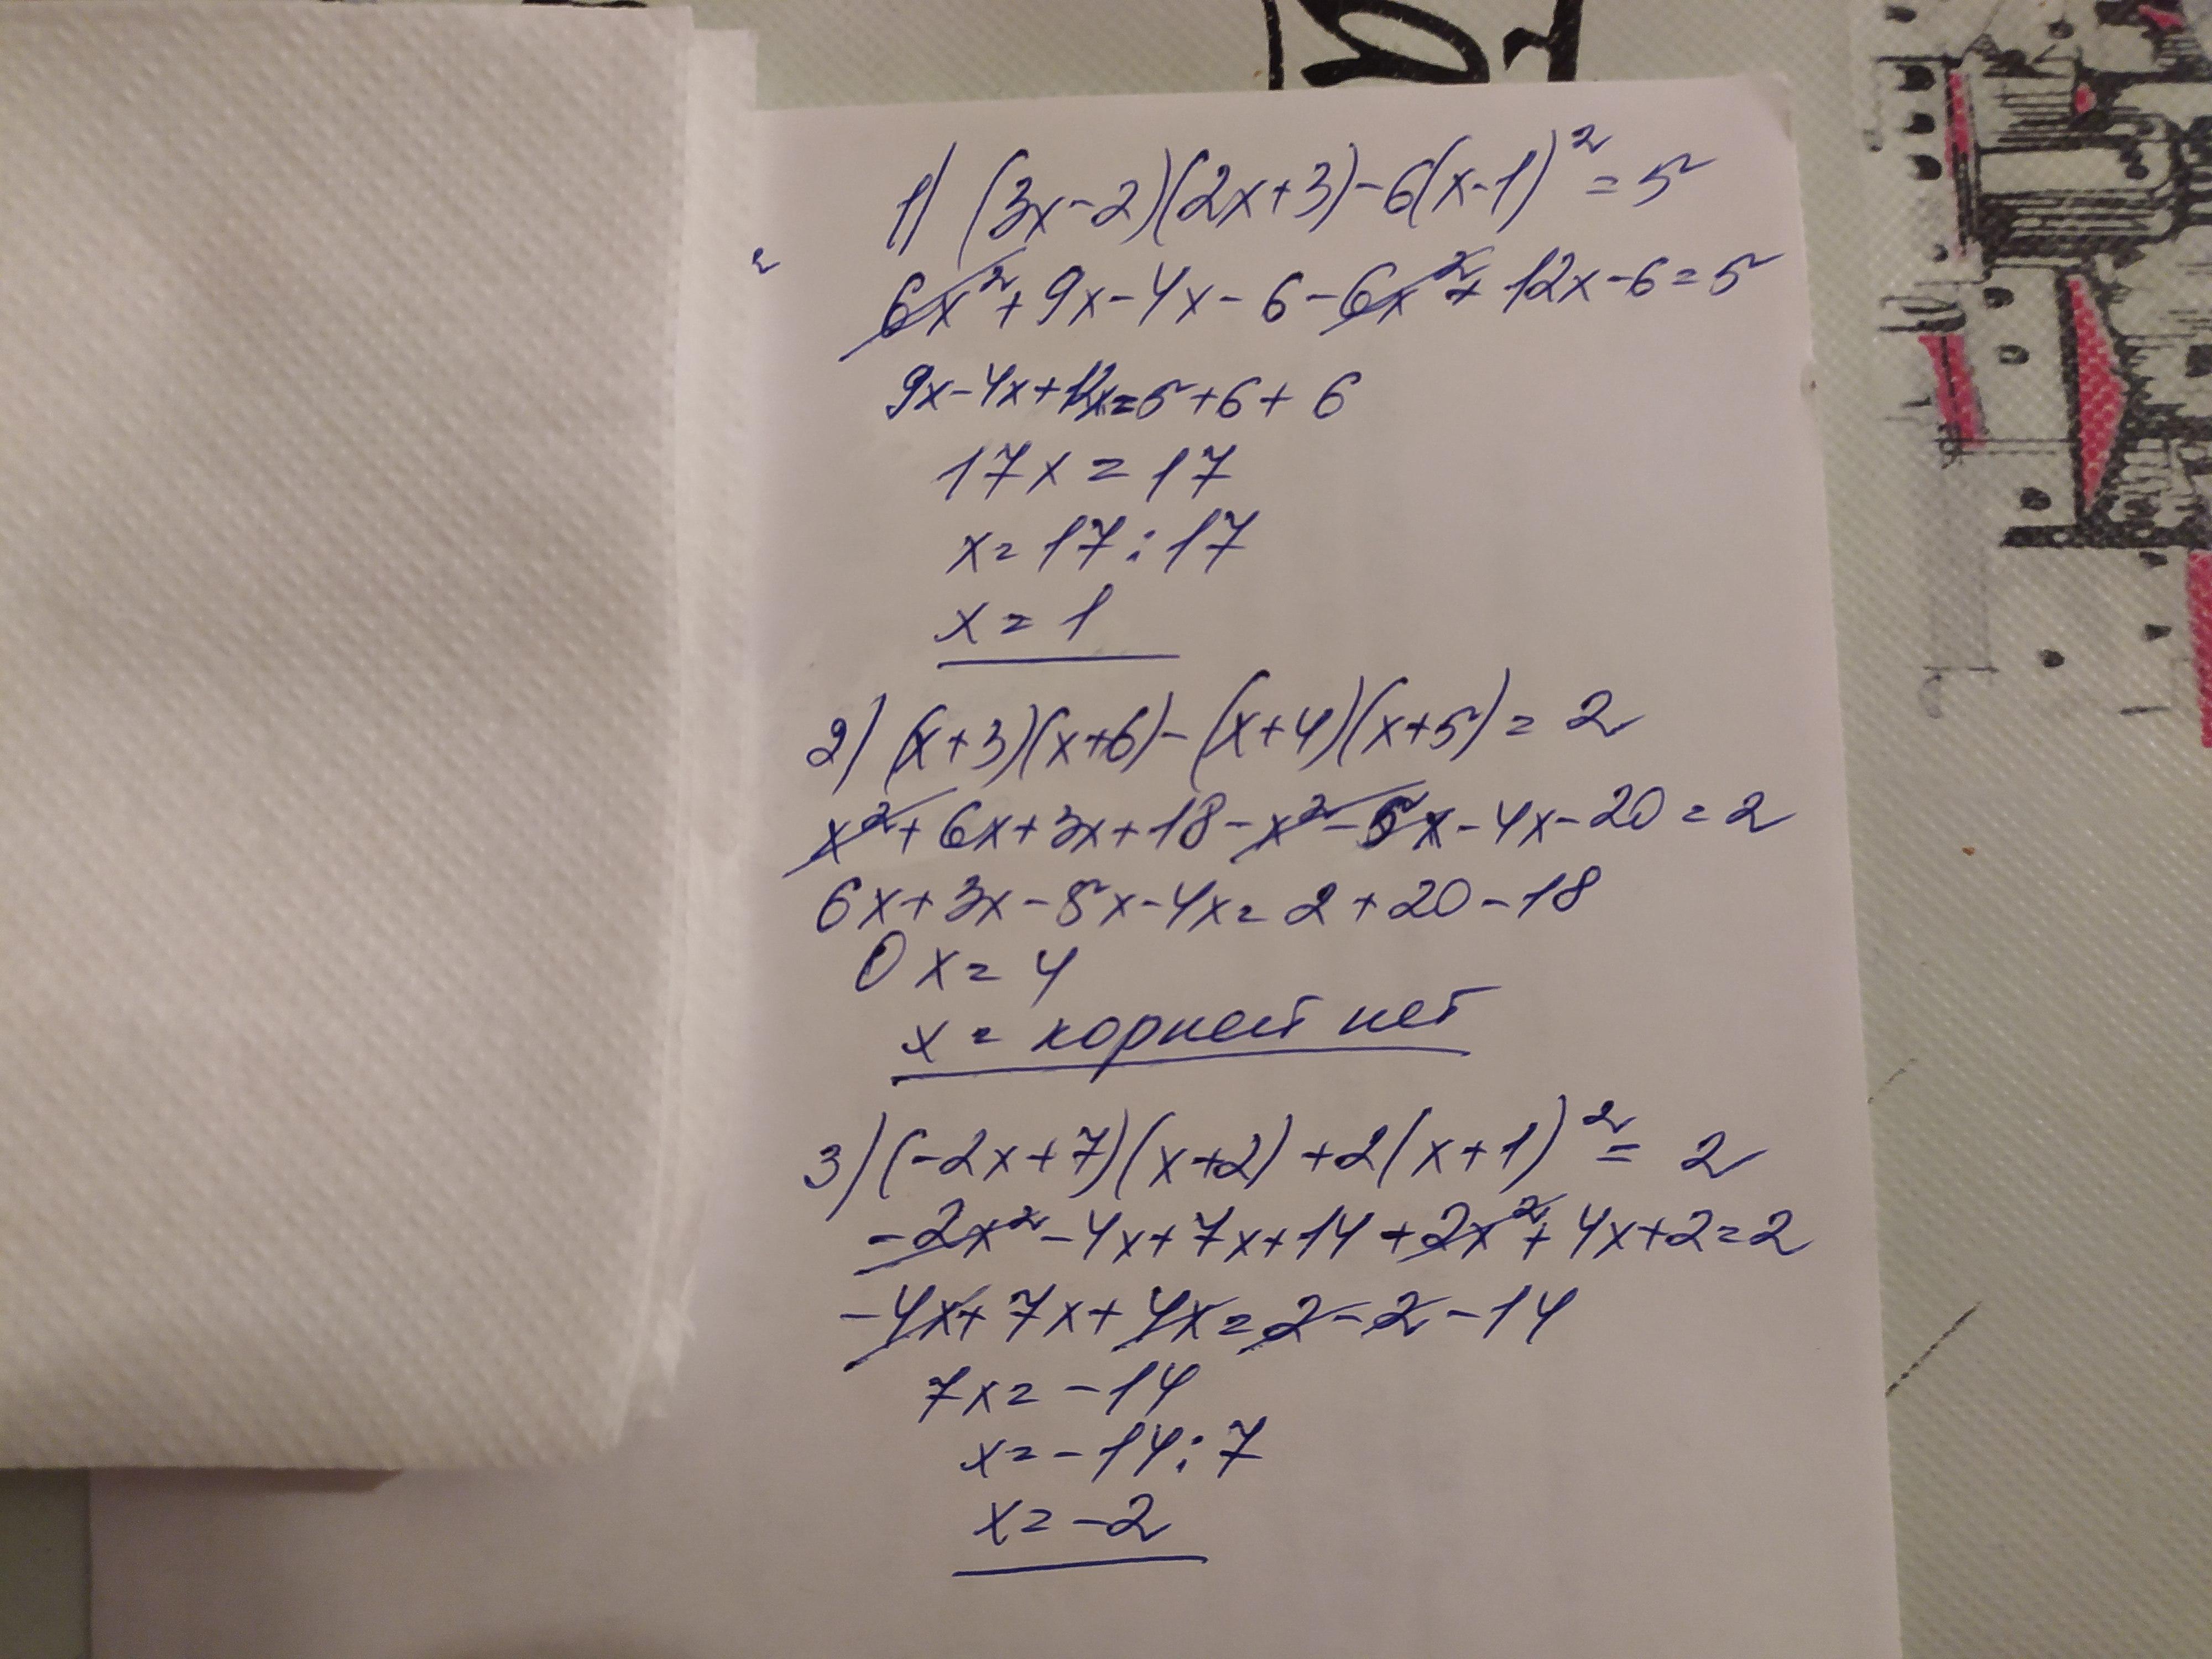 1) (3x-2)(2x+3)-6(x-1)²=5
6x²+9x-4x-6-6x²+12x-6=5
9x-4x+12x=5+6+6
17x=17
x=17:17
x=1
2) (x+3)(x+6)-(x+4)(x+5)=2
x²+6x+3x+18-x²-5x-4x-20=2
6x+3x-5x-4x=2+20-18
0x=4
x=корней нет
3) (-2x+7)(x+2)+2(x+1)²=2
-2x²-4x+7x+14+2x²+4x+2=2
-4x+7x+4x=2-2-14
7x=-14
x=-14:7
x=-2